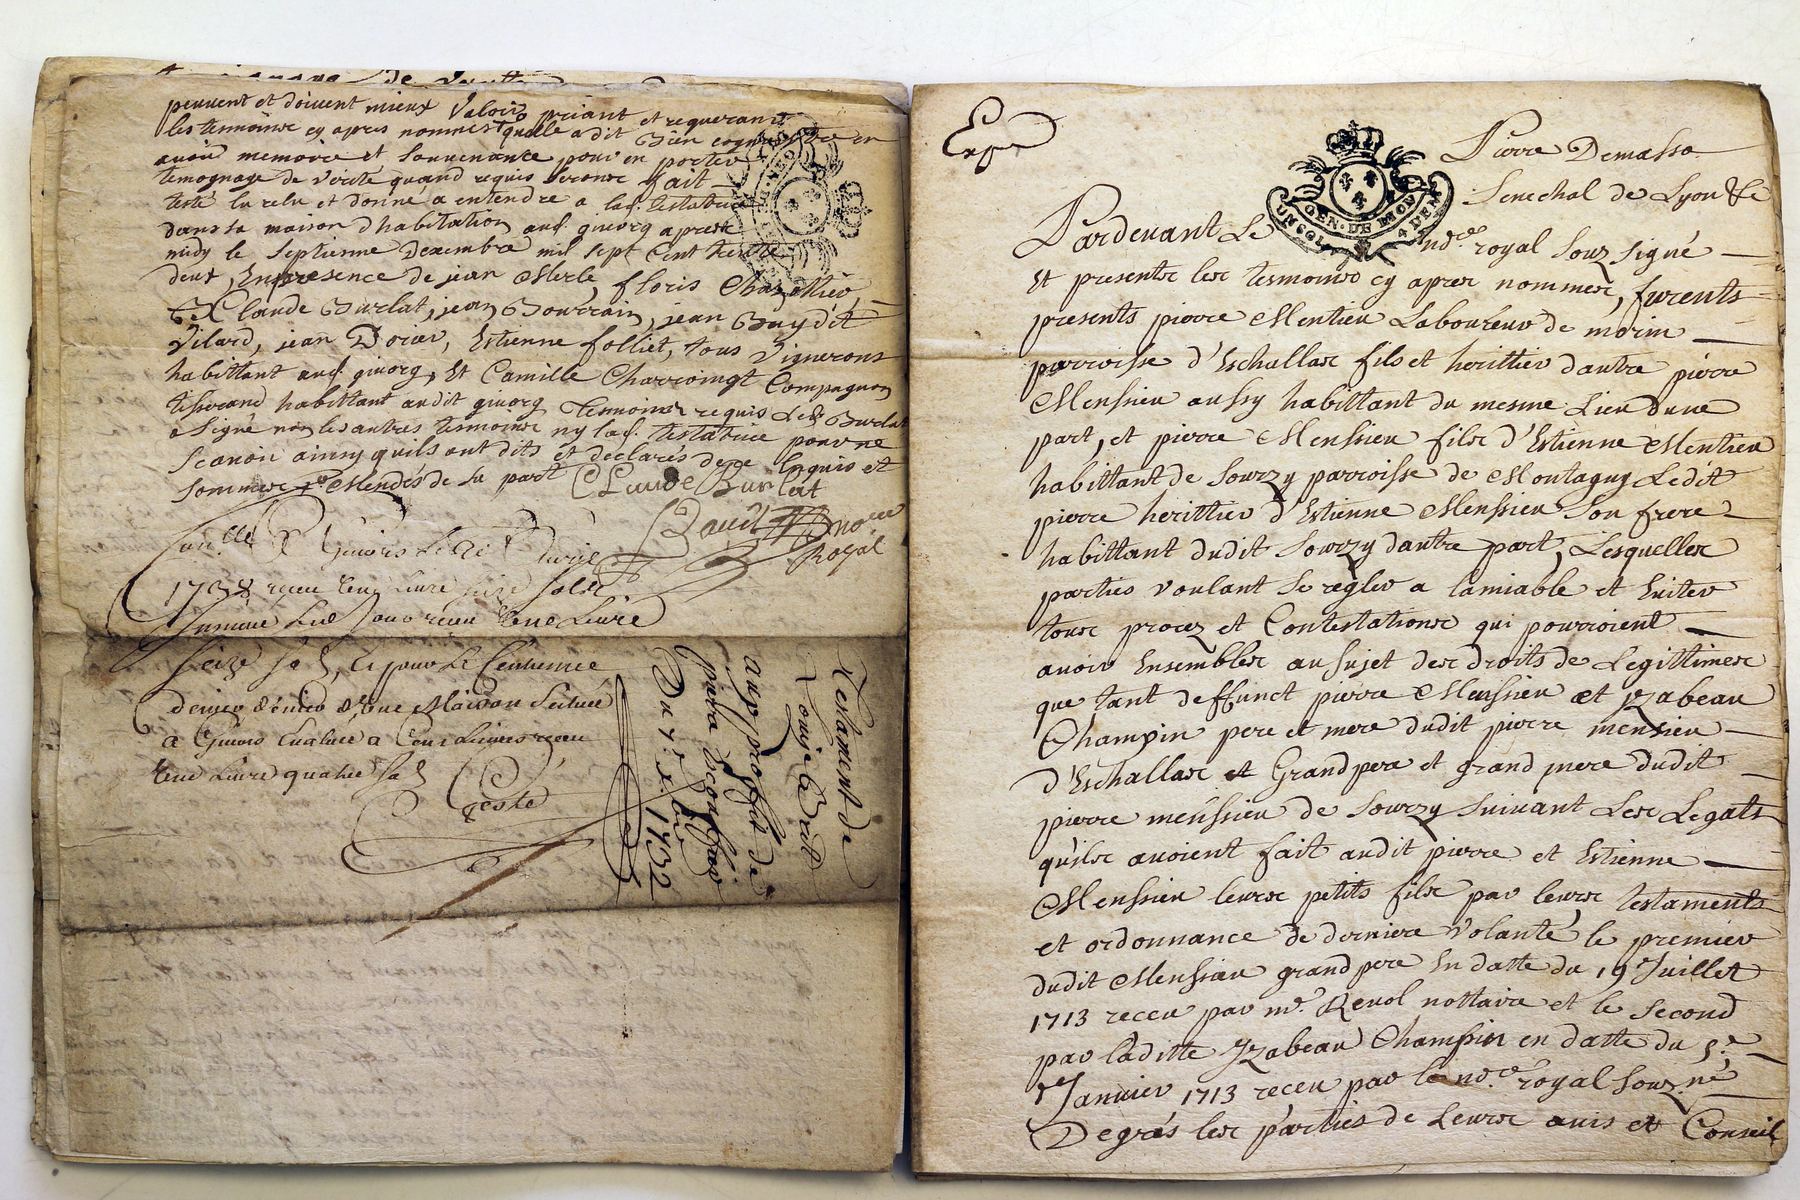 peuvent et doivent mieux valoir priant et requerant
les temoinsc cy apres nommés quelle a dit Bien cognoistre en
avoir memoire et souvenance pour en porter
temognage de verité quand requis seronsc fait
testé lu relu et donné a entendre a lad. testatrice
dans sa maison d'habitation aud. givorg apres
midy le septieme decembre mil sept cent trente
deux, En presence de jean Merle, floris Chazottier,
Claude Burlat, jean Bourrain, jean Buy dit
Vilard, jean Dorier, Estienne folliet, tous Vignerons
habittant aud. givorg, Et Camille Charroingt Compagnon
tisserand habittant audit givorg Temoinsc requis Led. Burlat
a signé non les autres temoinsc ny lad. testatrice pour ne
scavoir ainsy quils ont dits et declarés de ce Enquis et
sommésc de sa part Claude Burlat
nore
Royal
Givors le
1738 receu Une Livre seize solz
receu Une Livre
seize sols, et pour le Centieme
denier d'une Maison scituée
a Givors Evaluée a receu
Une Livre quatre sols
Testament de
Louise
au proffit de
Du 7e xbre 1732
Exp
GEN. DE
UN SOL 4 DEN
Pierre Demasso
Senechal de Lyon &c
Pardevant Le nore royal Souz signé
Et presentsc lesc tesmoinsc cy apresc nommesc, furents
presents pierre Menssieu Laboureur de morin
parroisse d'Eschallasc fils et herittier dautre pierre
Menssieu aussy habittant du mesme Lieu dune
part, et pierre Menssieu filsc d'Estienne Menssieu
habittant de Sourzy parroisse de Montagny Ledit
pierre herittier d'Estienne Menssieu Son frere
habittant dudit Sourzy dautre part, Lesquellesc
parties voulant se regler a lamiable et Eviter
tousc procez et Contestationsc qui pourroient
avoir Ensemblesc au sujet desc droits de Legittimesc
que tant deffunct pierre Menssieu et yzabeau
Champin pere et mere dudit pierre menssieu
d'Eschallasc et Grand pere et grand mere dudit
pierre menssieu de Sourzy suivant Lesc Legats
qu'ilsc avoient fait audit pierre et Estienne
Menssieu leursc petits filsc par leursc testaments
et ordonnance de derniere volanté le premier
dudit Menssieu grand pere En datte du 19 Juillet
1713 receu par me. Revol nottaire et le second
par laditte yzabeau Champin en datte du 5e.
Janvier 1713 receu par le nore royal souz.né
Degrés lesc parties de Leursc avis et Conseil